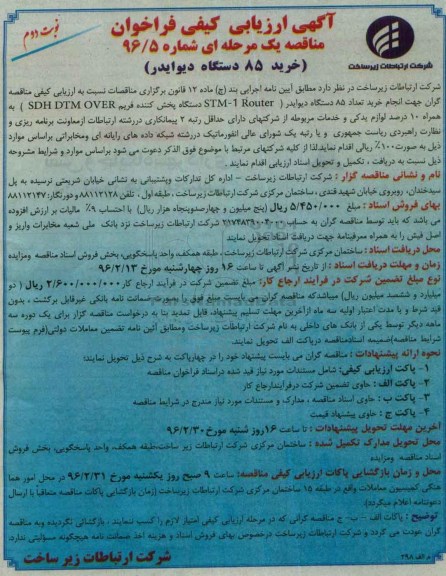 نوبت دوم
آگهی ارزیابی کیفی فراخوان
مناقصه یک مرحله ای شماره ۹۶/۵
(خرید ۸۵ دستگاه دیوایدر)
شرکت ارتباطات زیرساخت
شرکت ارتباطات زیرساخت در نظر دارد مطابق آیین نامه اجرایی بند (ج) ماده ۱۲ قانون برگزاری مناقصات نسبت به ارزیابی کیفی مناقصه
گران جهت انجام خرید تعداد ۸۵ دستگاه دیوایدر ( STM-1 Router دستگاه پخش کننده فریم SDH DTM OVER ) به
همراه ۱۰ درصد لوازم یدکی و خدمات مربوطه از شرکتهای دارای حداقل رتبه ۲ پیمانکاری دررشته ارتباطات ازمعاونت برنامه ریزی و
نظارت راهبردی ریاست جمهوری و یا رتبه یک شورای عالی انفورماتیک دررشته شبکه داده های رایانه ای ومخابراتی براساس موارد
ذیل به صورت ۱۰۰٪ ریالی اقدام نماید.لذا از کلیه شرکتهای مرتبط با موضوع فوق الذکر دعوت می شود براساس موارد و شرایط مشروحه
ذیل نسبت به دریافت ، تکمیل و تحویل اسناد ارزیابی اقدام نمایند .
نام و نشانی مناقصه گزار : شرکت ارتباطات زیرساخت – اداره کل تدارکات وپشتیبانی به نشانی خیابان شریعتی نرسیده به پل
سیدخندان، روبروی خیابان شهید قندی ، ساختمان مرکزی شرکت ارتباطات زیرساخت ، طبقه اول ، تلفن ۸۸۱۱۲۱۲۸ و دورنگار: ۸۸۱۱۲۱۴۷
بهای فروش اسناد : مبلغ ۵/۴۵۰/۰۰۰ ریال (پنج میلیون و چهارصدوپنجاه هزار ریال) با احتساب ۹٪ مالیات بر ارزش افزوده
می باشد که باید توسط مناقصه گران به حساب شرکت ارتباطات زیرساخت نزد بانک ملی شعبه مخابرات واریز و
اصل فیش را به همراه معرفینامه جهت دریافت اسناد تحویل نمایند
محل دریافت اسناد : ساختمان مرکزی شرکت ارتباطات زیرساخت ، طبقه همکف، واحد پاسخگویی، پخش فروش اسناد مناقصه ومزایده
زمان و مهلت دریافت اسناد : از تاریخ نشر آگهی تا ساعت ۱۶ روز چهارشنبه مورخ ۹۶/۲/۱۳
نوع مبلغ تضمین شرکت در فرآیند ارجاع کار: مبلغ تضمین شرکت در فرآیند ارجاع کار ۲/۶۰۰/۰۰۰/۰۰۰ ریال ( دو
میلیارد و ششصد میلیون ریال) میباشدکه مناقصه گران می بایست مبلغ فوق را بصورت ضمانت نامه بانکی غیرقابل برگشت ، بدون
قید شرط و با مدت اعتبار اولیه سه ماه ازآخرین مهلت تسلیم پیشنهاد، قابل تمدید بنا به درخواست مناقصه گزار برای یک دوره سه
ماهه دیگر توسط یکی از بانک های داخلی به نام شرکت ارتباطات زیرساخت ومطابق آئین نامه تضمین معاملات دولتی(فرم پیوست
شرایط مناقصه)ضمیمه اسنادمناقصه درپاکت الف تحویل نمایند.
نحوه ارائه پیشنهادات : مناقصه گران می بایست پیشنهاد خود را در چهارپاکت به شرح ذیل تحویل نمایند:
۱- پاکت ارزیابی کیفی: شامل مستندات مورد نیاز قید شده دراسناد فراخوان مناقصه
۲- پاکت الف : حاوی تضمین شرکت درفرآیندارجاع کار
۳- پاکت ب : حاوی اسناد مناقصه ، مدارک و مستندات مورد نیاز مندرج در شرایط مناقصه
۴- پاکت ج : حاوی پیشنهاد قیمت
آخرین مهلت تحویل پیشنهادات : تا ساعت ۱۶روز شنبه مورخ ۹۶/۲/۳۰
محل تحویل مدارک تکمیل شده : ساختمان مرکزی شرکت ارتباطات زیر ساخت،طبقه همکف، واحد پاسخگویی، بخش فروش
اسناد مناقصه ومزایده
محل و زمان بازگشایی پاکات ارزیابی کیفی مناقصه: ساعت ۹ صبح روز یکشنبه مورخ ۹۶/۲/۳۱ در محل امور هما
هنگی کمیسیون معاملات واقع در طبقه ۱۵ ساختمان مرکزی شرکت ارتباطات زیرساخت (زمان بازگشایی پاکات مناقصه متعاقباً با ارسال
دعوتنامه اعلام میگردد)
توضیح : پاکات الف – ب- ج مناقصه گرانی که در مرحله ارزیابی کیفی امتیاز لازم را کسب ننمایند ، بازگشائی نگردیده وبه مناقصه
گران عودت می گردد و شرکت ارتباطات زیرساخت درخصوص بهای فروش اسناد و هزینه اخذ ضمانت نامه هیچگونه مسولیتی ندارد.
شرکت ارتباطات زیر ساخت
م الف ۲۹۸